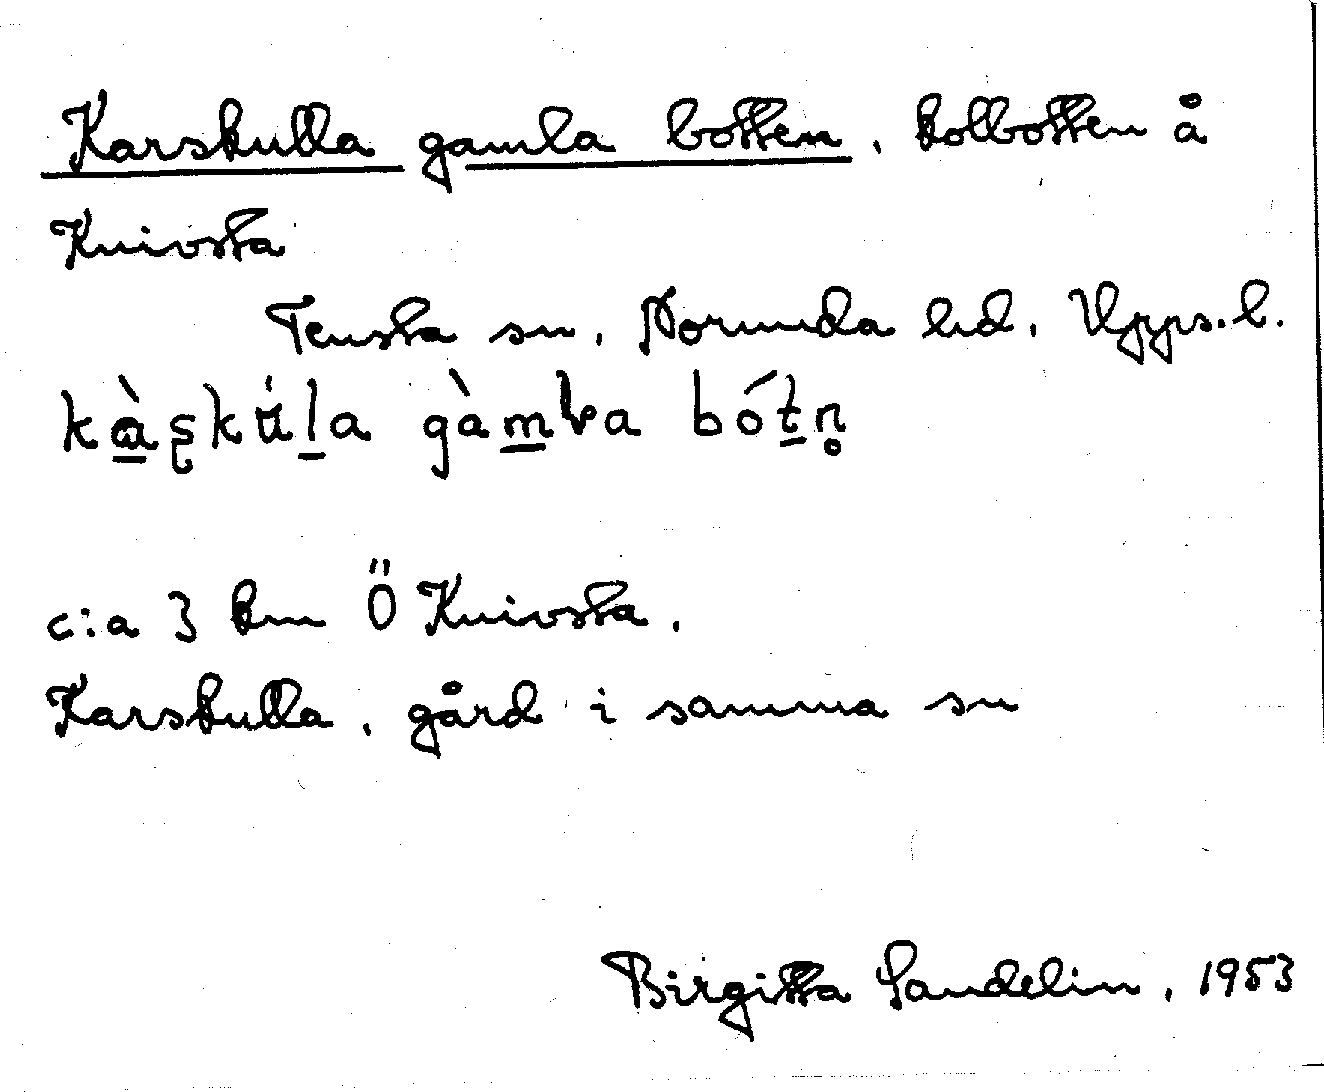 Karskulla gamla botten, kolbotten å
Knivsta
Tensta sn, Norunda hd, Upps.l.
c:a 3 km Ö Knivsta.
Karskulla, gård i samma sn
Birgitta Sandelin, 1953